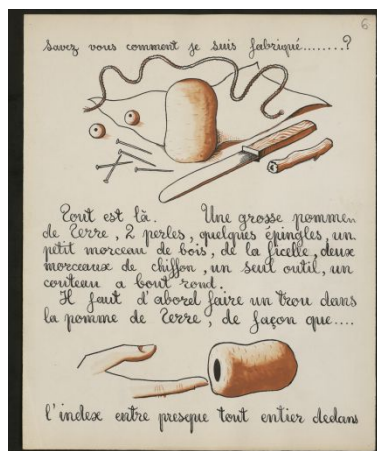 6
Savez vous comment je suis fabriqué........?
Tout est là. Une grosse pomme
de Terre, 2 perles, quelques épingles, un
petit morceau de bois, de la ficelle, deux
morceaux de chiffon, un seul outil, un
couteau a bout rond.
Il faut d'abord faire un trou dans
la pomme de Terre, de façon que....
l'index entre presque tout entier dedans